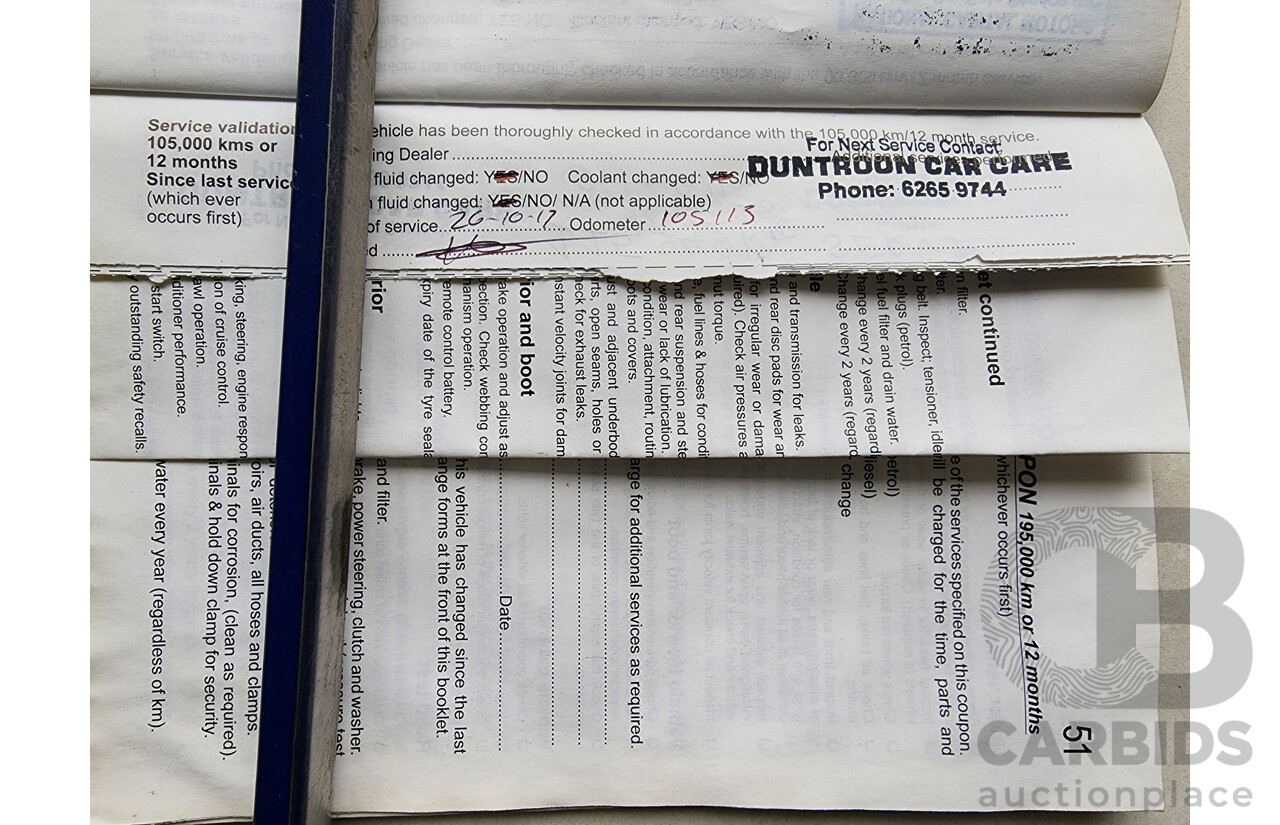 Service validation
105,000 kms or
12 months
Since last service
(which ever
occurs first)
ehicle has been thoroughly checked in accordance with the 105,000 km/12 month service.
ing Dealer
fluid changed: YES/NO Coolant changed: YES/NO
fluid changed: YES/NO/ N/A (not applicable)
of service 26-10-17 Odometer 105113
For Next Service Contact,
DUNTROON CAR CARE
Phone: 6265 9744
et continued
n filter.
g belt. Inspect; tensioner, idle
plugs (petrol).
l fuel filter and drain water.
hange every 2 years (regard
hange every 2 years (regard
and transmission for leaks.
nd rear disc pads for wear an
for irregular wear or dama
uired). Check air pressures a
nut torque.
e, fuel lines & hoses for condi
nd rear suspension and ste
wear or lack of lubrication.
ondition, attachment, routin
ots and covers.
ust and adjacent underbod
rts, open seams, holes or
heck for exhaust leaks.
nstant velocity joints for dam
ior and boot
ake operation and adjust as
pection. Check webbing con
hanism operation.
emote control battery.
piry date of the tyre seala
rior
king, steering, engine respon
ion of cruise control.
awl operation.
ditioner performance.
start switch.
outstanding safety recalls.
51
PON 195,000 km or 12 months
whichever occurs first)
e of the services specified on this coupon.
will be charged for the time, parts and
etrol)
iesel)
change
arge for additional services as required.
Date
his vehicle has changed since the last
ange forms at the front of this booklet.
and filter.
rake, power steering, clutch and washer.
oirs, air ducts, all hoses and clamps.
inals for corrosion, (clean as required).
inals & hold down clamp for security.
water every year (regardless of km).
CARBIDS
auctionplace